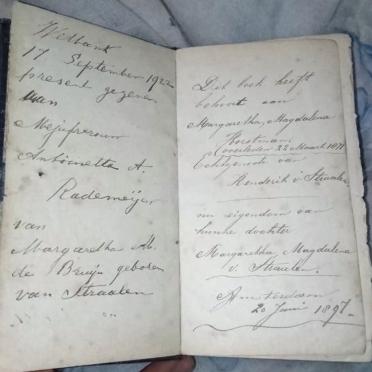 Witbank
17 September 1922
present gegeven
aan
Mejufvrouw
Antoinetta A.
Rademeijer
van
Margaretha M.
de Bruijn geboren
van Straalen
Dit boek heeft
behoort aan
Margaretha, Magdalena
Horstman
overleden 22 Maart 1871
Echtgenoot van
Hendrik v Straalen
nu eigendom van
hunne dochter
Margaretha, Magdalena
v. Straalen.
Amsterdam
20 Juni 1897.